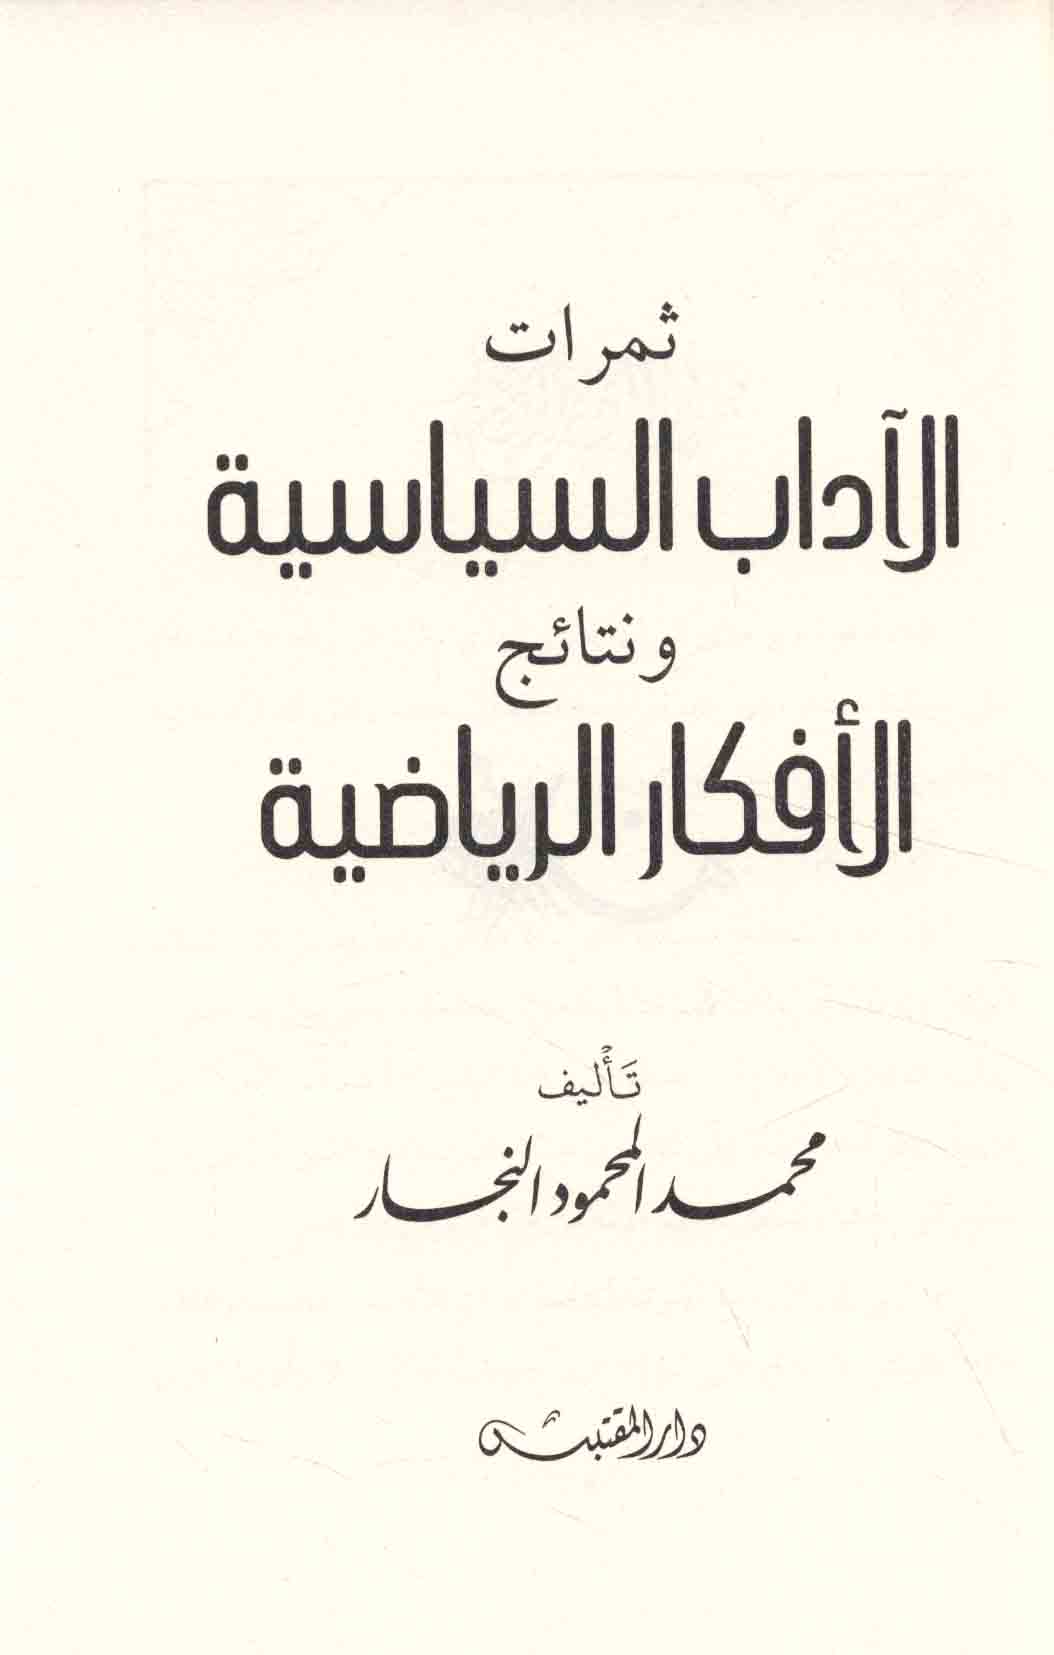 ثمرات
الآداب السياسية
ونتائج
الأفكار الرياضية
تَأْليف
محمد المحمود النجار
دار المقتبس